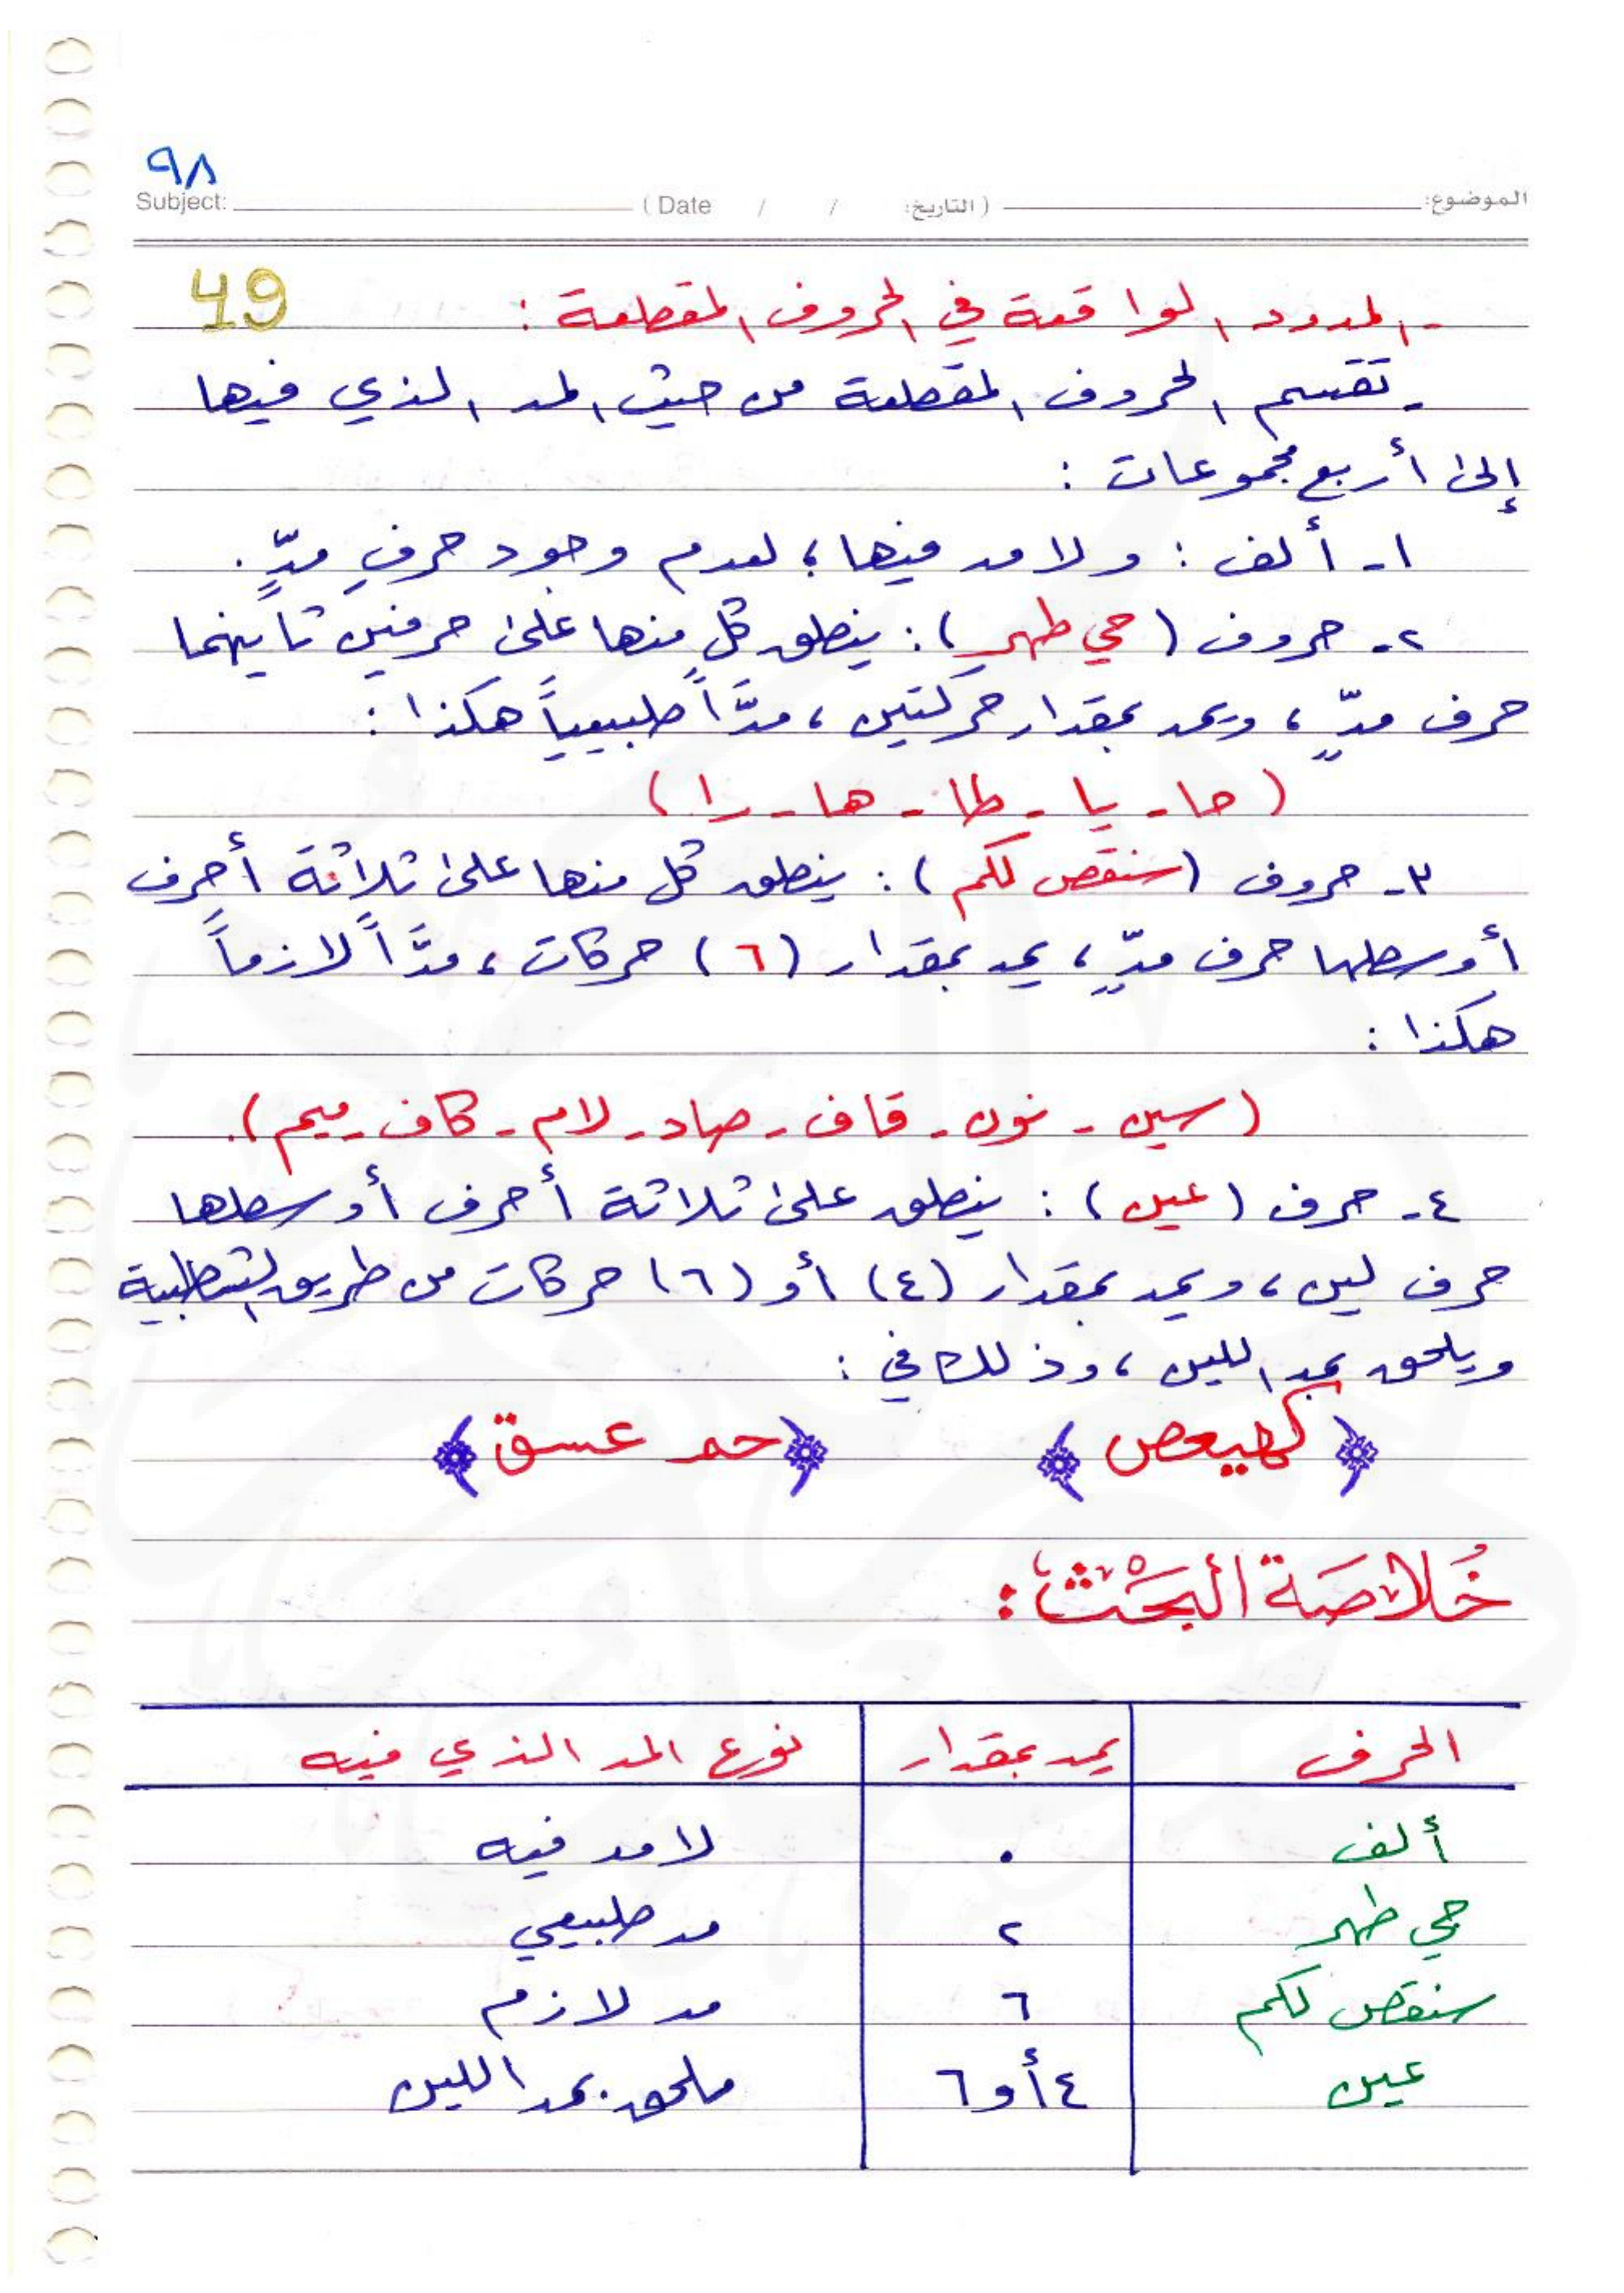 ٩٨
الموضوع: (التاريخ: / / Date ) Subject:
49
- المدود الواقعة في الحروف المقطعة :
- تقسم الحروف المقطعة من حيث المد الذي فيها
إلى أربع مجموعات :
١- ألف : ولا مد فيها ؛ لعدم وجود حرف مدٍّ .
٢- حروف (حي طهر) : ينطق كل منها على حرفين ثانيهما
حرف مدٍّ ، ويمد بمقدار حركتين ، مدَّاً طبيعياً هكذا :
(حا - يا - طا - ها - را)
٣- حروف (سنقص لكم) : ينطق كل منها على ثلاثة أحرف
أوسطها حرف مدٍّ ، يمد بمقدار (٦) حركات ، مدَّاً لازماً
هكذا :
(سين - نون - قاف - صاد - لام - كاف - ميم).
٤- حرف (عين) : ينطق على ثلاثة أحرف أوسطها
حرف لين ، ويمد بمقدار (٤) أو (٦) حركات من طريق الشاطبية
ويلحق بمد اللين ، وذلك في :
﴿كهيعص﴾ ﴿حم عسق﴾
خُلاصَة البَحْث :
الحرف يمد بمقدار نوع المد الذي فيه
ألف ٠ لا مد فيه
حي طهر ٢ مد طبيعي
سنقص لكم ٦ مد لازم
عين ٤ أو ٦ ملحق بمد اللين